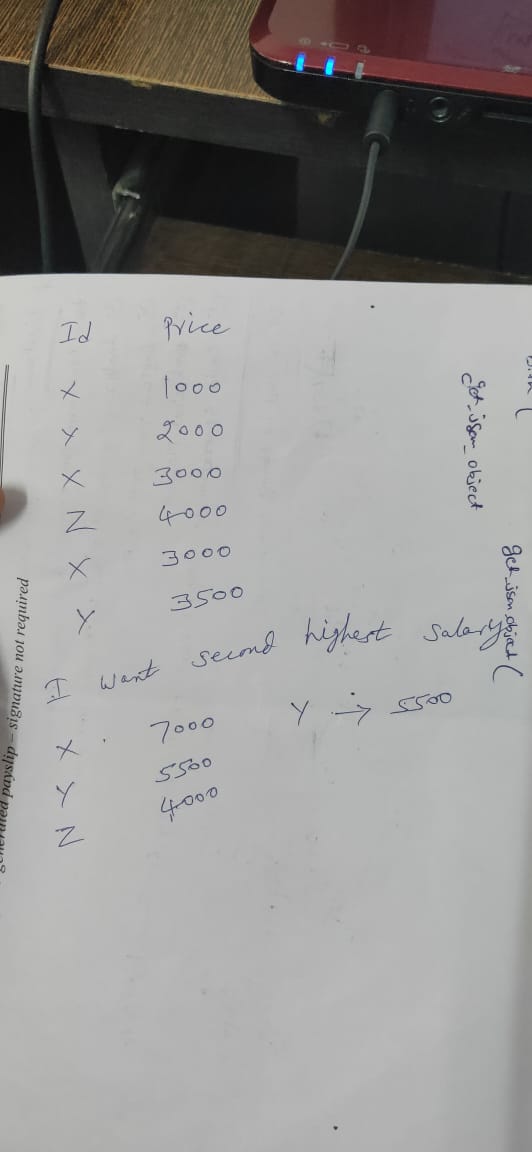 Id Price
X 1000
Y 2000
X 3000
Z 4000
X 3000
Y 3500
I want second highest salary
X 7000 Y → 5500
Y 5500
Z 4000
get_json_object
get_json_object (
generated payslip – signature not required